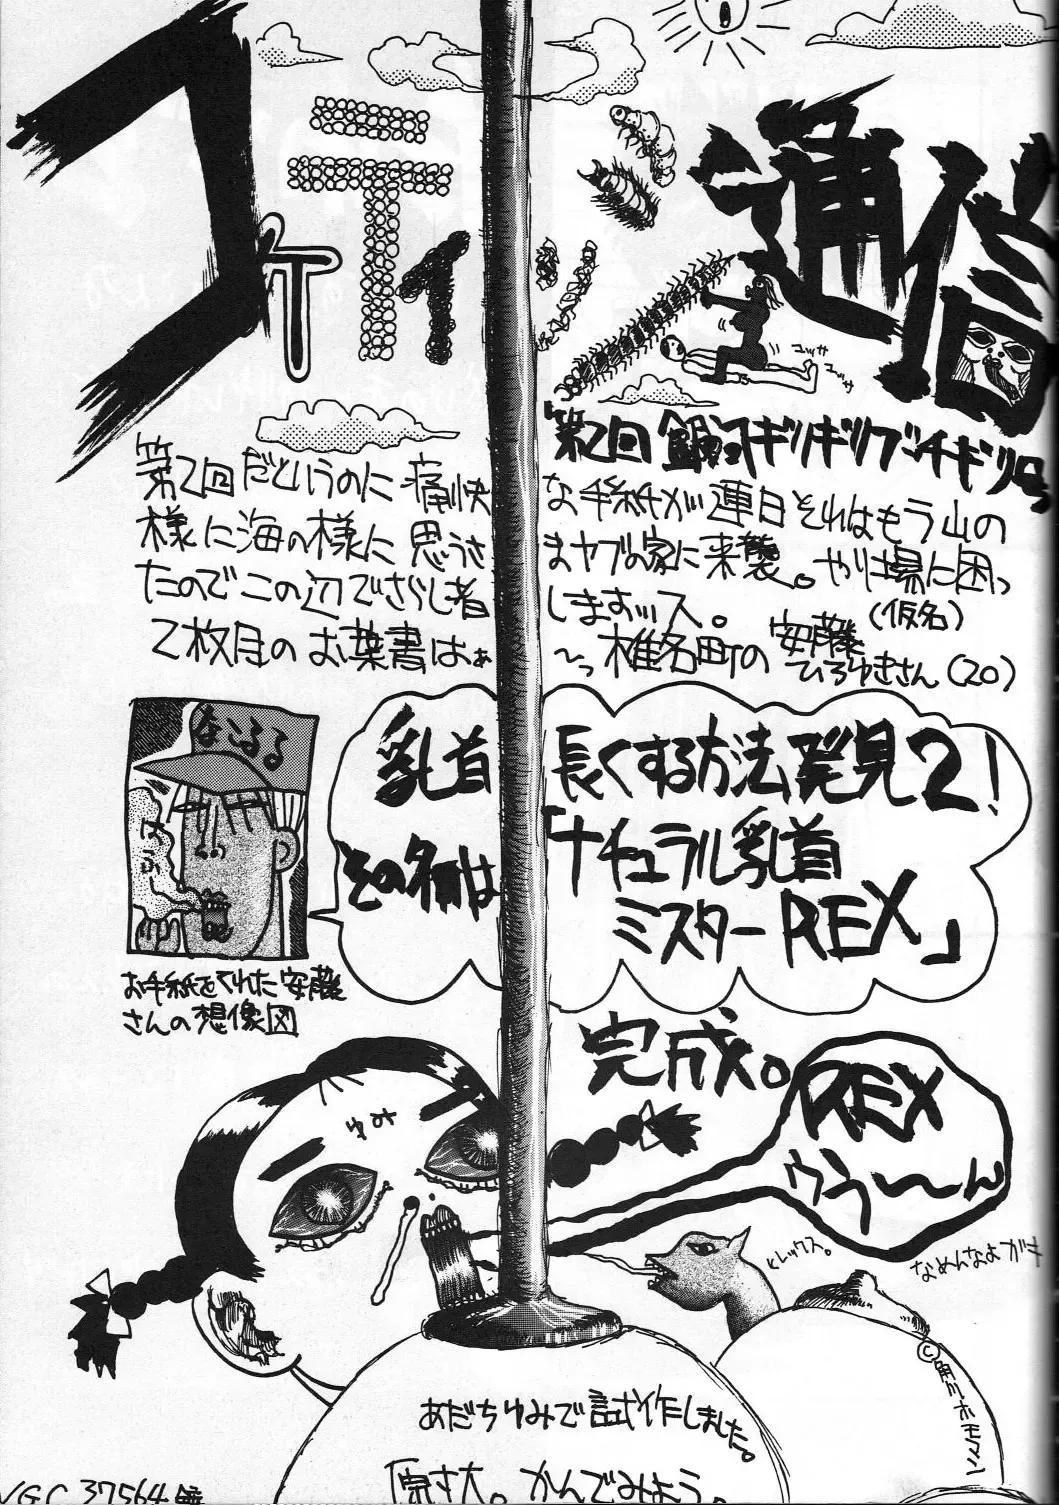 コケティッシュ通信
コッサ
コッサ
第2回だというのに痛快な手紙が連日それはもう山の
様に海の様に思うさまヤブの家に来襲。やり場に困っ
たのでこの辺でさらし者しますッス。
2枚目のお葉書はぁ〜っ椎名町の安藤ひろゆきさん(仮名)(20)
なこるる
乳首長くする方法発見2!
その名は「ナチュラル乳首
ミスターREX」
お手紙をくれた安藤
さんの想像図
完成。
REX
ウう〜ん
ゆみ
とレックス。
なめんなよガキ
あだちゆみで試作しました。
原寸大。かんでみよう。
VGC 37564